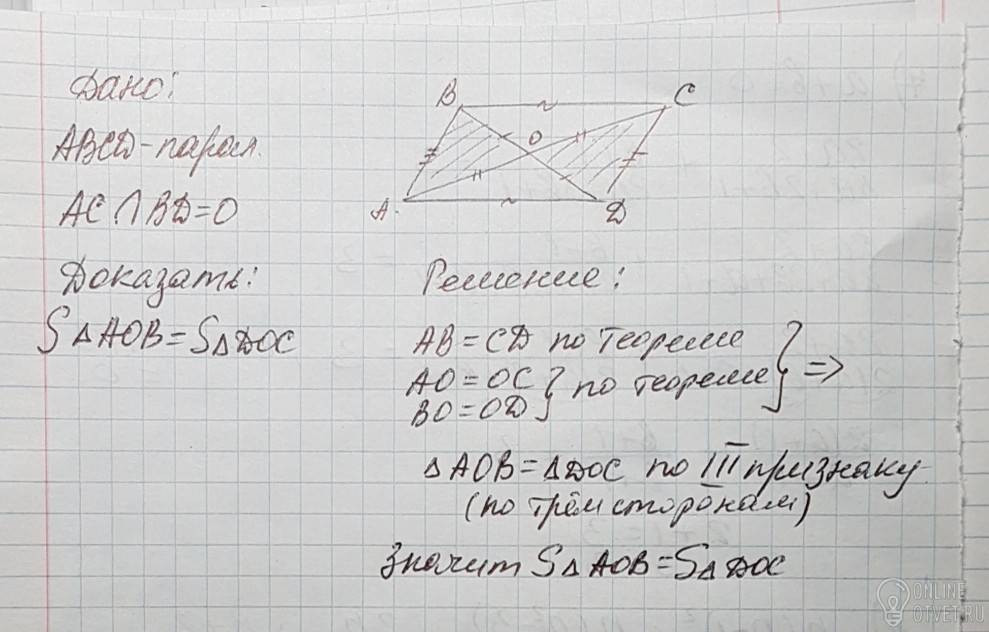 Дано:
ABCD - парал.
AC ∩ BD = O
Доказать:
S△AOB = S△DOC
B
C
O
A
D
Решение:
AB = CD по теореме
AO = OC } по теореме } =>
BO = OD
△AOB = △DOC по III признаку
(по трём сторонам)
Значит S△AOB = S△DOC
ONLINE
OTVET.RU